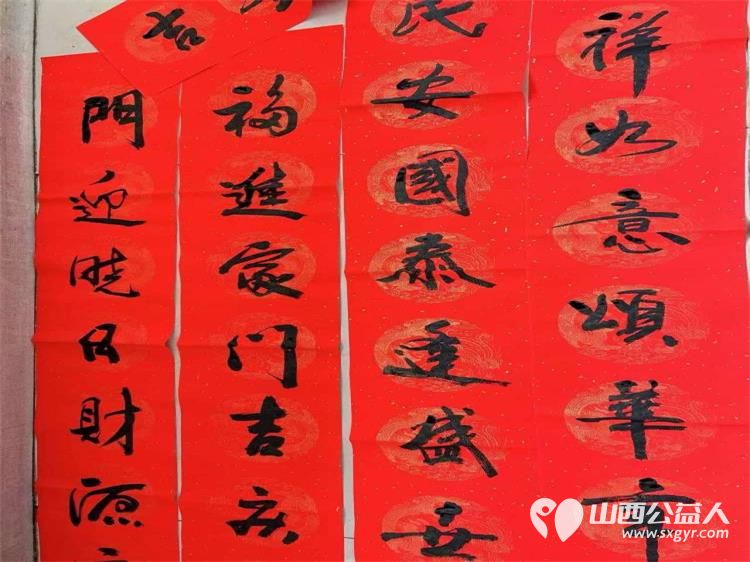 祥如意頌華
民安國泰逢盛世
福進家门吉庆
門迎晓日財源
吉
山西公益人
www.sxgyr.com